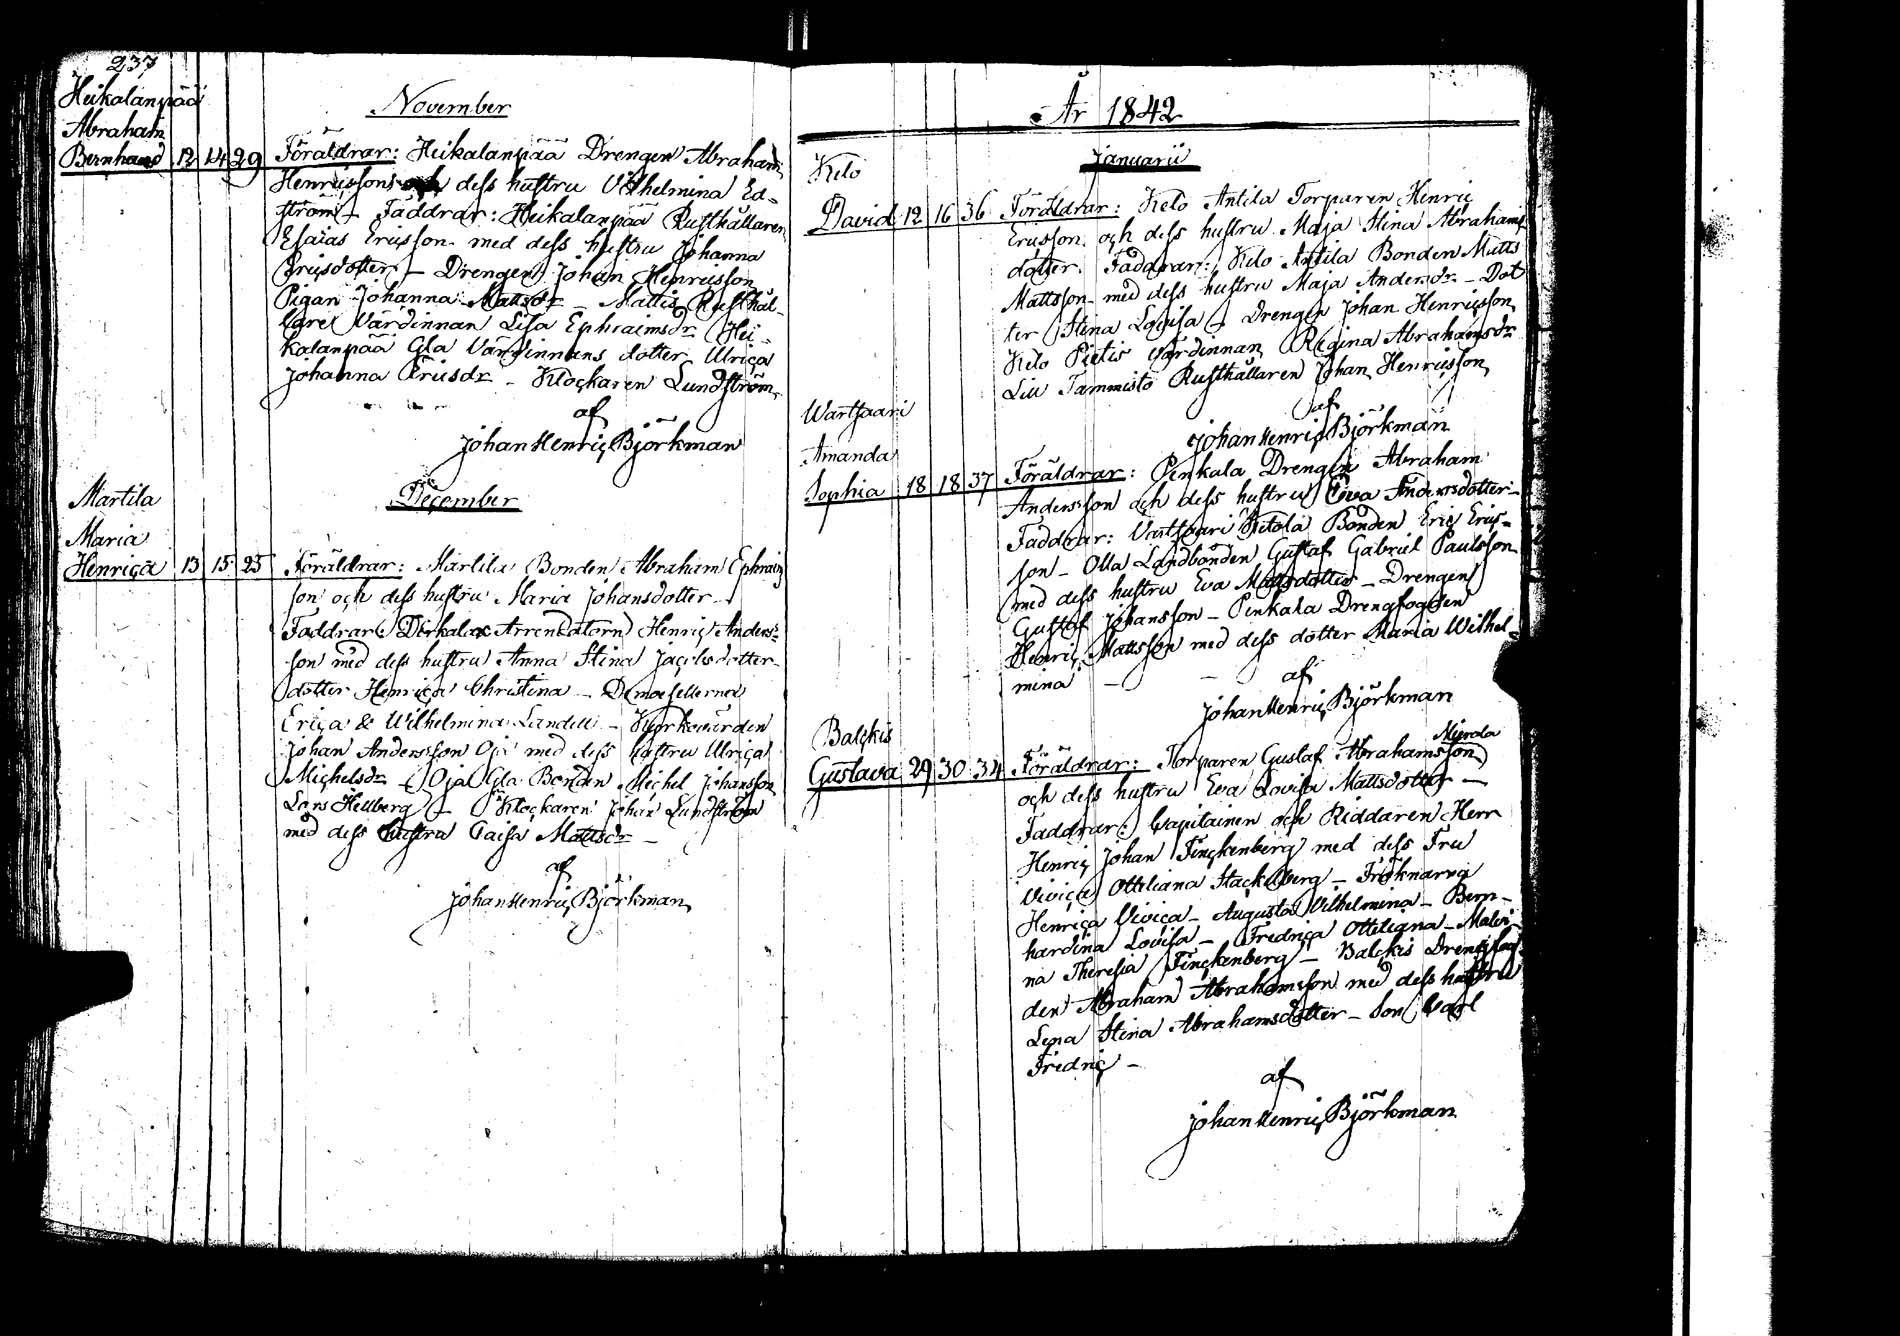 237
Heikalanpää
November
Abraham
Bernhard 12 14 29 Föräldrar: Heikalanpää Drengen Abraham
Henricsson och dess hustru Vilhelmina Ed-
ström – Faddrar: Heikalanpää Rusthållaren
Esaias Ericsson med dess hustru Johanna
Ericsdotter – Drengen Johan Henricsson
Pigan Johanna Mattsdr – Mattis Rusthål-
lare Värdinnan Lisa Ephraimsdr Hei-
kalanpää Gla Värdinnans dotter Ulrica
Johanna Ericsdr – Klockaren Lundström
af
Johan Henric Björkman
Martila
December
Maria
Henrica 13 15 25 Föräldrar: Martila Bonden Abraham Ephraims
son och dess hustru Maria Johansdotter
Faddrar: Arrendatorn Henric Anders-
son med dess hustru Anna Stina Jacobsdotter
dotter Henrica Christina – Demoisellerna
Erica & Wilhelmina Landell – Kyrkovärden
Johan Andersson Oja med dess hustru Ulrica
Michelsdr – Oja Gla Bondan Michel Johansson
Lars Hellberg – Klockaren Johan Lundström
med dess hustru Caisa Mattsdr –
af
Johan Henric Björkman
År 1842
Januarii
Kelo
David 12 16 36 Föräldrar: Kelo Antila Torparen Henric
Ericsson och dess hustru Maja Stina Abrahams
dotter. Faddrar: Kelo Antila Bonden Matts
Mattsson med dess hustru Maja Andersdr – Dot
ter Stina Lovisa – Drengen Johan Henricsson
Kelo Pietis Värdinnan Regina Abrahamsdr
Liu Tammisto Rusthållaren Johan Henricsson
af
Johan Henric Björkman
Wartsaari
Amanda
Sophia 18 18 37 Föräldrar: Penkala Drengen Abraham
Andersson och dess hustru Eva Andersdotter –
Faddrar: Vartsaari Bonden Eric Erics-
son – Olla Landbonden Gustaf Gabriel Paulsson
med dess hustru Eva Mattsdotter – Drengen
Gustaf Johansson – Penkala Drengfogden
Henric Mattsson med dess dotter Maria Wilhel-
mina –
af
Johan Henric Björkman
Balckis
Gustava 29 30 34 Föräldrar: Torparen Gustaf Abrahamsson
och dess hustru Eva Lovisa Mattsdotter –
Faddrar: Capitainen och Riddaren Herr
Henric Johan Finckenberg med dess Fru
Vivica Otteliana Stackelberg – Fröknarna
Henrica Vivica – Augusta Vilhelmina – Bern-
hardina Lovisa – Fredrica Otteliana – Malvi-
na Theresia Finckenberg – Balckis Drengfog-
den Abraham Abrahamsson med dess hustru
Lena Stina Abrahamsdotter – Son Carl
Fredric –
af
Johan Henric Björkman